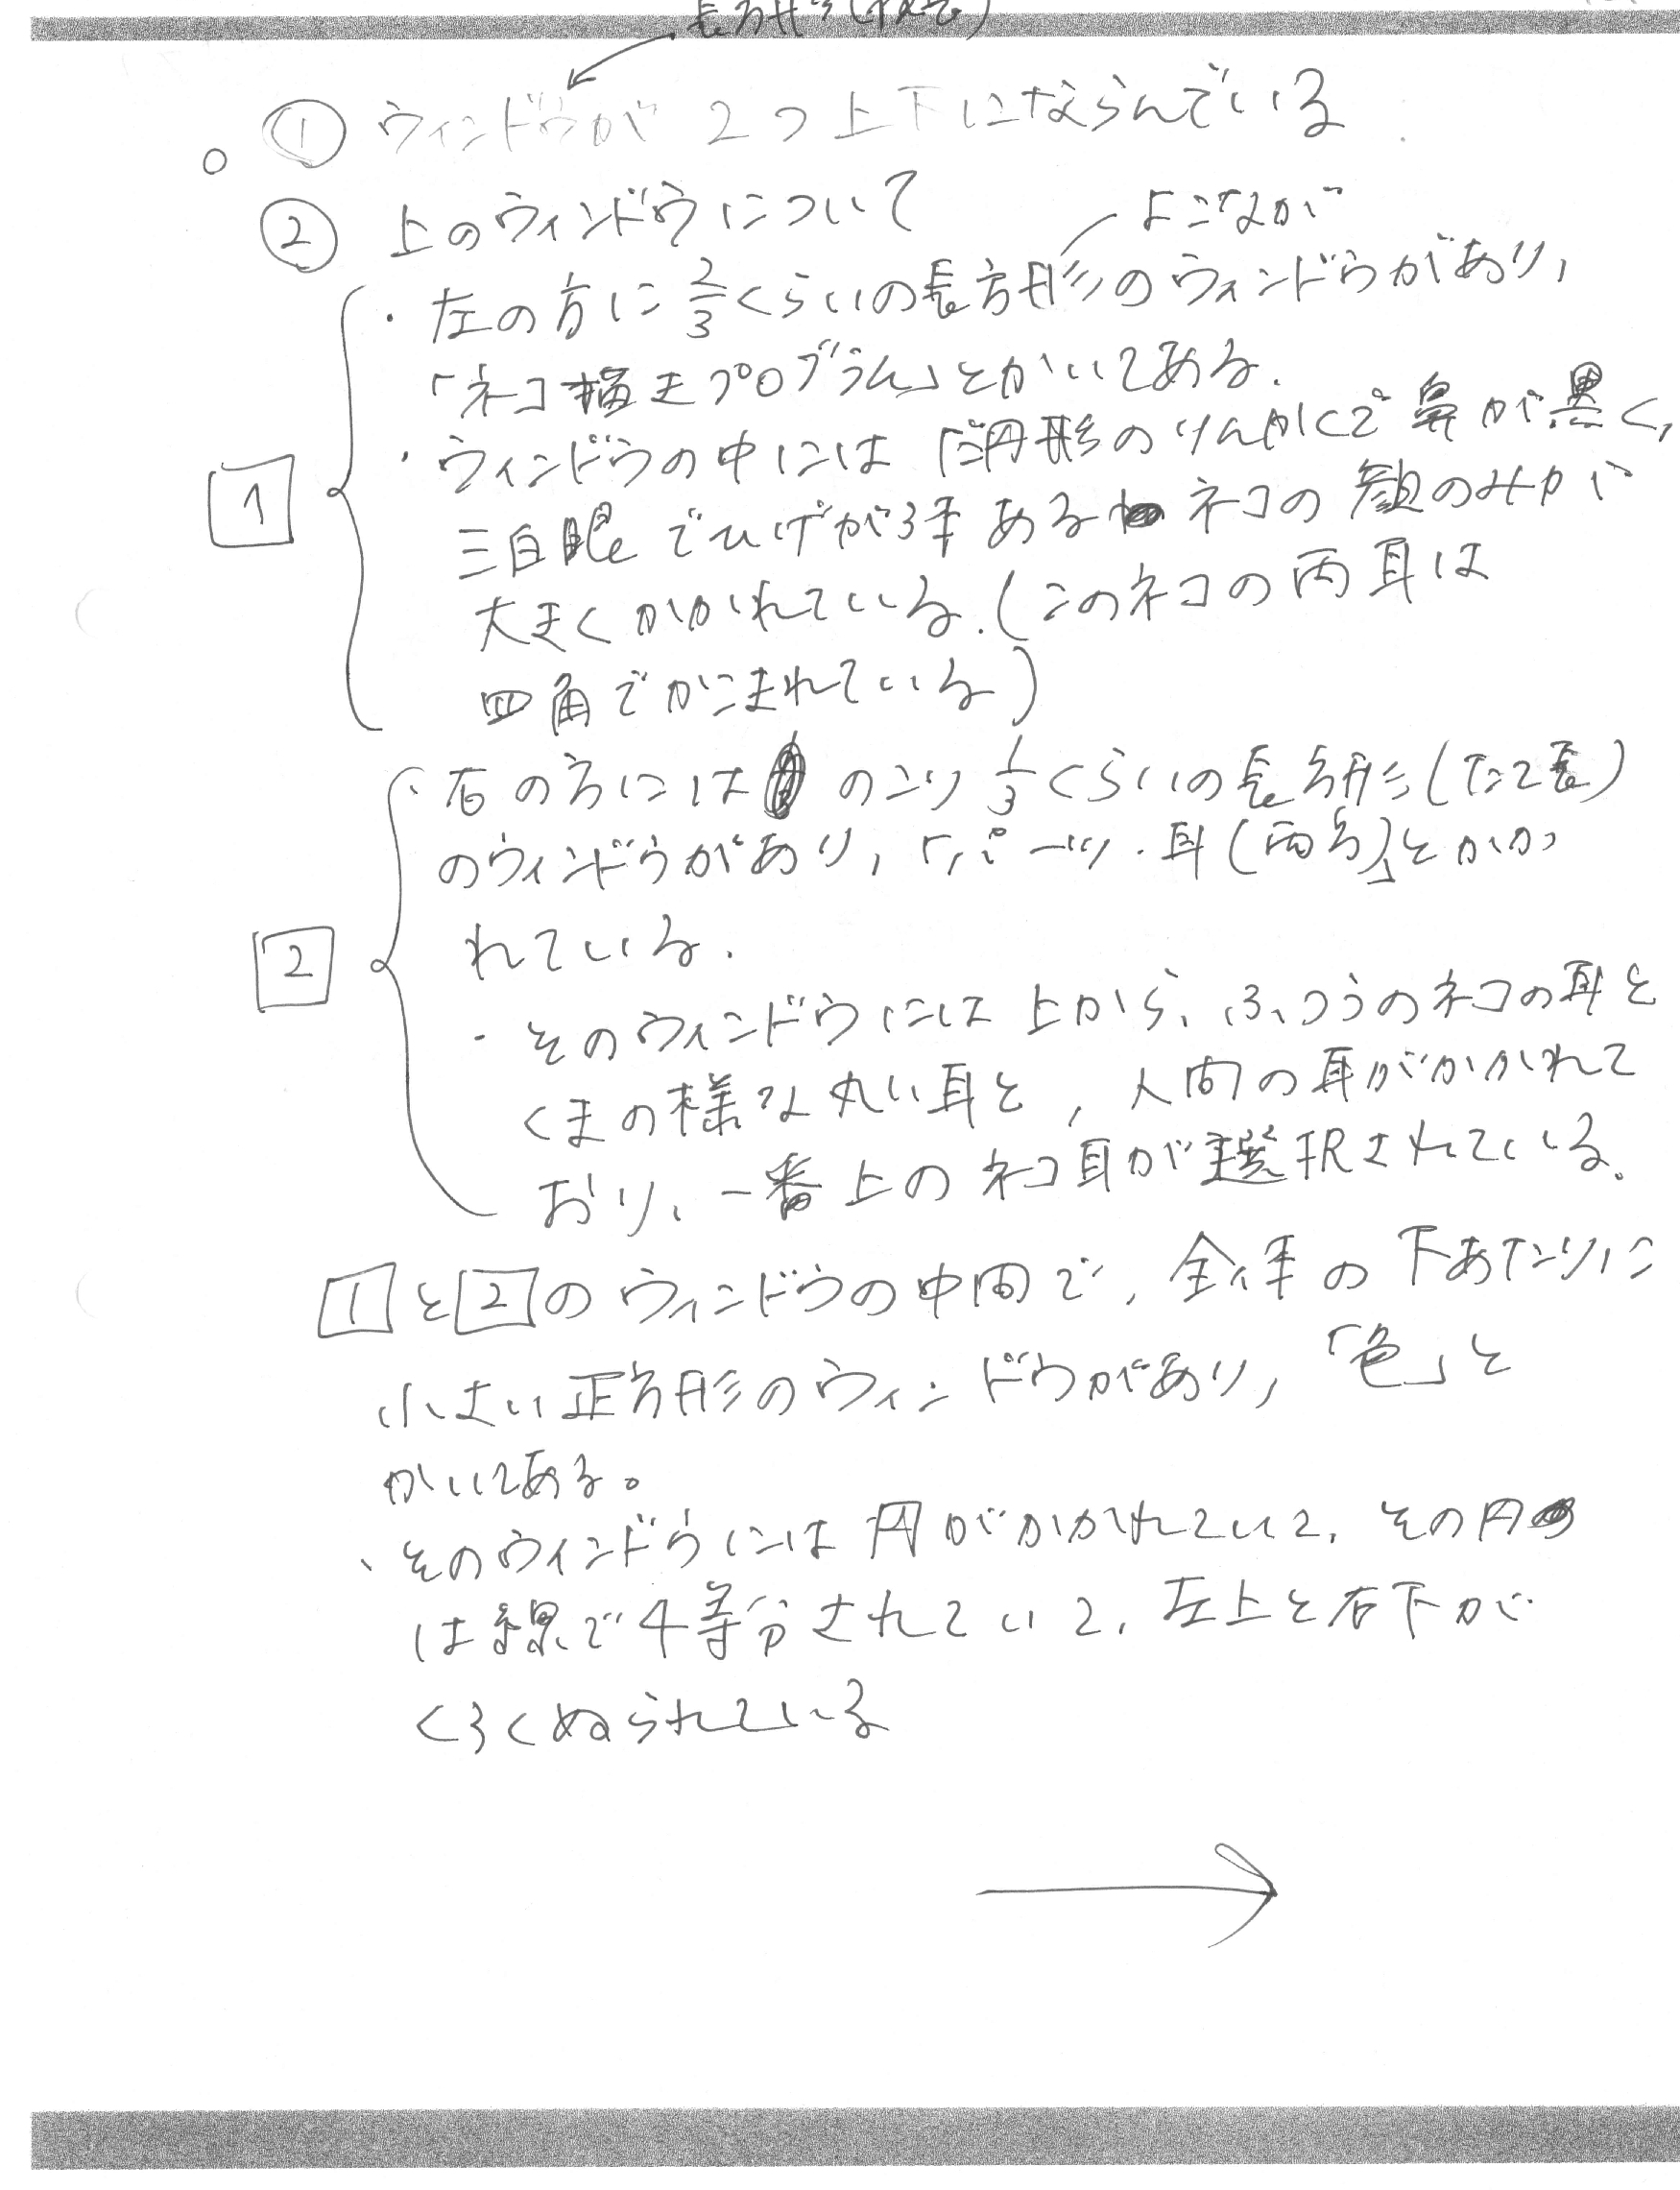 長方形(
① ウィンドウが 2つ上下にならんでいる
② 上のウィンドウについて
よこなが
・左の方に 2/3 くらいの長方形のウィンドウがあり,
「ネコ描きプログラム」とかいてある.
・ウィンドウの中には だ円形のりんかくで 鼻が黒く,
三白眼でひげが3本ある ネコの顔のみが
大きくかかれている.(このネコの両耳は
四角でかこまれている)
1
・右の方には のこり 1/3 くらいの長方形(たて長)
のウィンドウがあり,「パーツ・耳(両方)」とかか
れている.
・そのウィンドウには上から、ふつうのネコの耳と
くまの様な丸い耳と, 人間の耳がかかれて
おり、一番上のネコ耳が選択されている。
2
1と2のウィンドウの中間で, 全体の下あたりに
小さい正方形のウィンドウがあり,「色」と
かいてある。
・そのウィンドウには円がかかれていて, その円
は線で4等分されていて, 左上と右下が
くろくぬられている